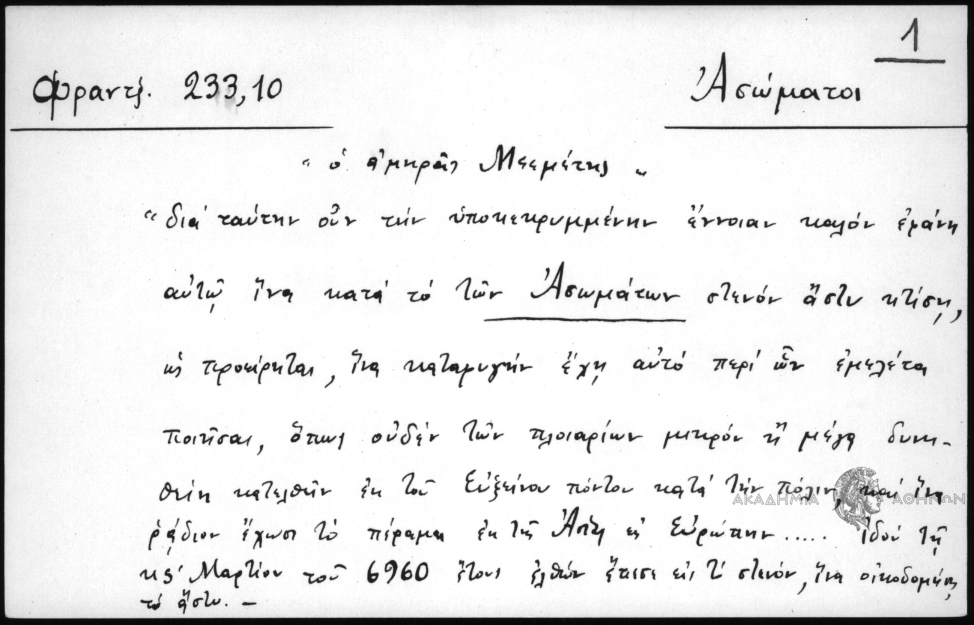 1
Φραντζ. 233,10
Ἀσώματοι
"ὁ ἀμηρᾶς Μεεμέτης"
"διὰ ταύτην οὖν τὴν ὑποκεκρυμμένην ἔννοιαν καλὸν ἐφάνη
αὐτῷ ἵνα κατὰ τὸ τῶν Ἀσωμάτων στενὸν ἄστυ κτίσῃ,
ὡς προείρηται, ἵνα καταφυγὴν ἔχῃ αὐτὸ περὶ ὧν ἐμελέτα
ποιῆσαι, ὅπως οὐδὲν τῶν πλοιαρίων μικρὸν ἢ μέγα δυνη-
θείη κατελθεῖν ἐκ τοῦ Εὐξείνου πόντου κατὰ τὴν πόλιν, καὶ ἵνα
ΑΚΑΔΗΜΙΑ ΑΘΗΝΩΝ
ῥᾴδιον ἔχωσι τὸ πέραμα ἐκ τῆς Ἀσίας εἰς Εὐρώπην ..... ἰδοὺ τῇ
κϛʹ Μαρτίου τοῦ 6960 ἔτους ἐλθὼν ἔπεσε εἰς τὸ στενόν, ἵνα οἰκοδομήσῃ
τὸ ἄστυ. –